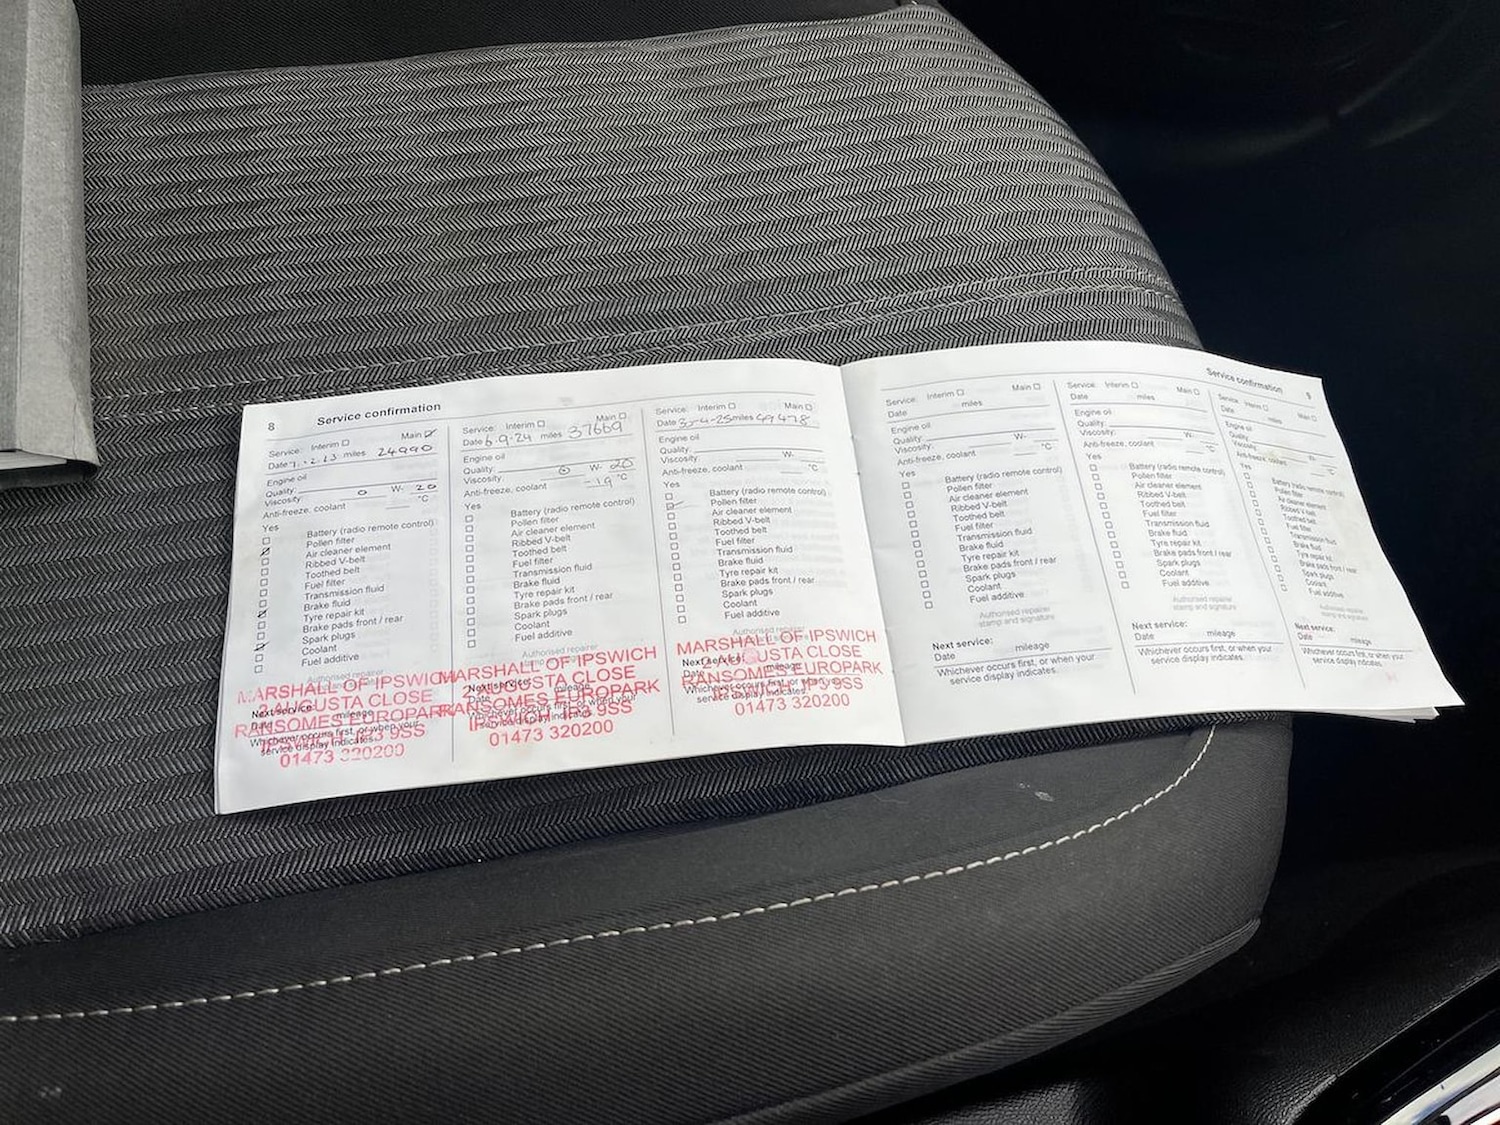 8 Service confirmation
Service: Interim Main
Date miles 24990
Engine oil
Quality:
Viscosity: 0 W- 20
Anti-freeze, coolant °C
Yes
Battery (radio remote control)
Pollen filter
Air cleaner element
Ribbed V-belt
Toothed belt
Fuel filter
Transmission fluid
Brake fluid
Tyre repair kit
Brake pads front / rear
Spark plugs
Coolant
Fuel additive
Authorised repairer
MARSHALL OF IPSWICH
AUGUSTA CLOSE
RANSOMES EUROPARK
IPSWICH IP3 9SS
01473 320200
Next service:
Date mileage
Whichever occurs first, or when your
service display indicates.
Service: Interim Main
Date 6.9.24 miles 37669
Engine oil
Quality:
Viscosity: 0 W- 20
Anti-freeze, coolant -19 °C
Yes
Battery (radio remote control)
Pollen filter
Air cleaner element
Ribbed V-belt
Toothed belt
Fuel filter
Transmission fluid
Brake fluid
Tyre repair kit
Brake pads front / rear
Spark plugs
Coolant
Fuel additive
Authorised repairer
MARSHALL OF IPSWICH
AUGUSTA CLOSE
RANSOMES EUROPARK
IPSWICH IP3 9SS
01473 320200
Next service:
Date mileage
Whichever occurs first, or when your
service display indicates.
Service: Interim Main
Date 30-4-25 miles 49478
Engine oil
Quality:
Viscosity: W-
Anti-freeze, coolant °C
Yes
Battery (radio remote control)
Pollen filter
Air cleaner element
Ribbed V-belt
Toothed belt
Fuel filter
Transmission fluid
Brake fluid
Tyre repair kit
Brake pads front / rear
Spark plugs
Coolant
Fuel additive
Authorised repairer
MARSHALL OF IPSWICH
AUGUSTA CLOSE
RANSOMES EUROPARK
IPSWICH IP3 9SS
01473 320200
Next service:
mileage
Whichever occurs first, or when your
service display indicates.
Service confirmation 9
Service: Interim Main
Date miles
Engine oil
Quality:
Viscosity: W-
Anti-freeze, coolant °C
Yes
Battery (radio remote control)
Pollen filter
Air cleaner element
Ribbed V-belt
Toothed belt
Fuel filter
Transmission fluid
Brake fluid
Tyre repair kit
Brake pads front / rear
Spark plugs
Coolant
Fuel additive
Authorised repairer
stamp and signature
Next service:
Date mileage
Whichever occurs first, or when your
service display indicates.
Service: Interim Main
Date miles
Engine oil
Quality:
Viscosity: W-
Anti-freeze, coolant °C
Yes
Battery (radio remote control)
Pollen filter
Air cleaner element
Ribbed V-belt
Toothed belt
Fuel filter
Transmission fluid
Brake fluid
Tyre repair kit
Brake pads front / rear
Spark plugs
Coolant
Fuel additive
Authorised repairer
stamp and signature
Next service:
Date mileage
Whichever occurs first, or when your
service display indicates.
Service: Interim Main
Date miles
Engine oil
Quality:
Viscosity: W-
Anti-freeze, coolant °C
Yes
Battery (radio remote control)
Pollen filter
Air cleaner element
Ribbed V-belt
Toothed belt
Fuel filter
Transmission fluid
Brake fluid
Tyre repair kit
Brake pads front / rear
Spark plugs
Coolant
Fuel additive
Authorised repairer
stamp and signature
Next service:
Date mileage
Whichever occurs first, or when your
service display indicates.